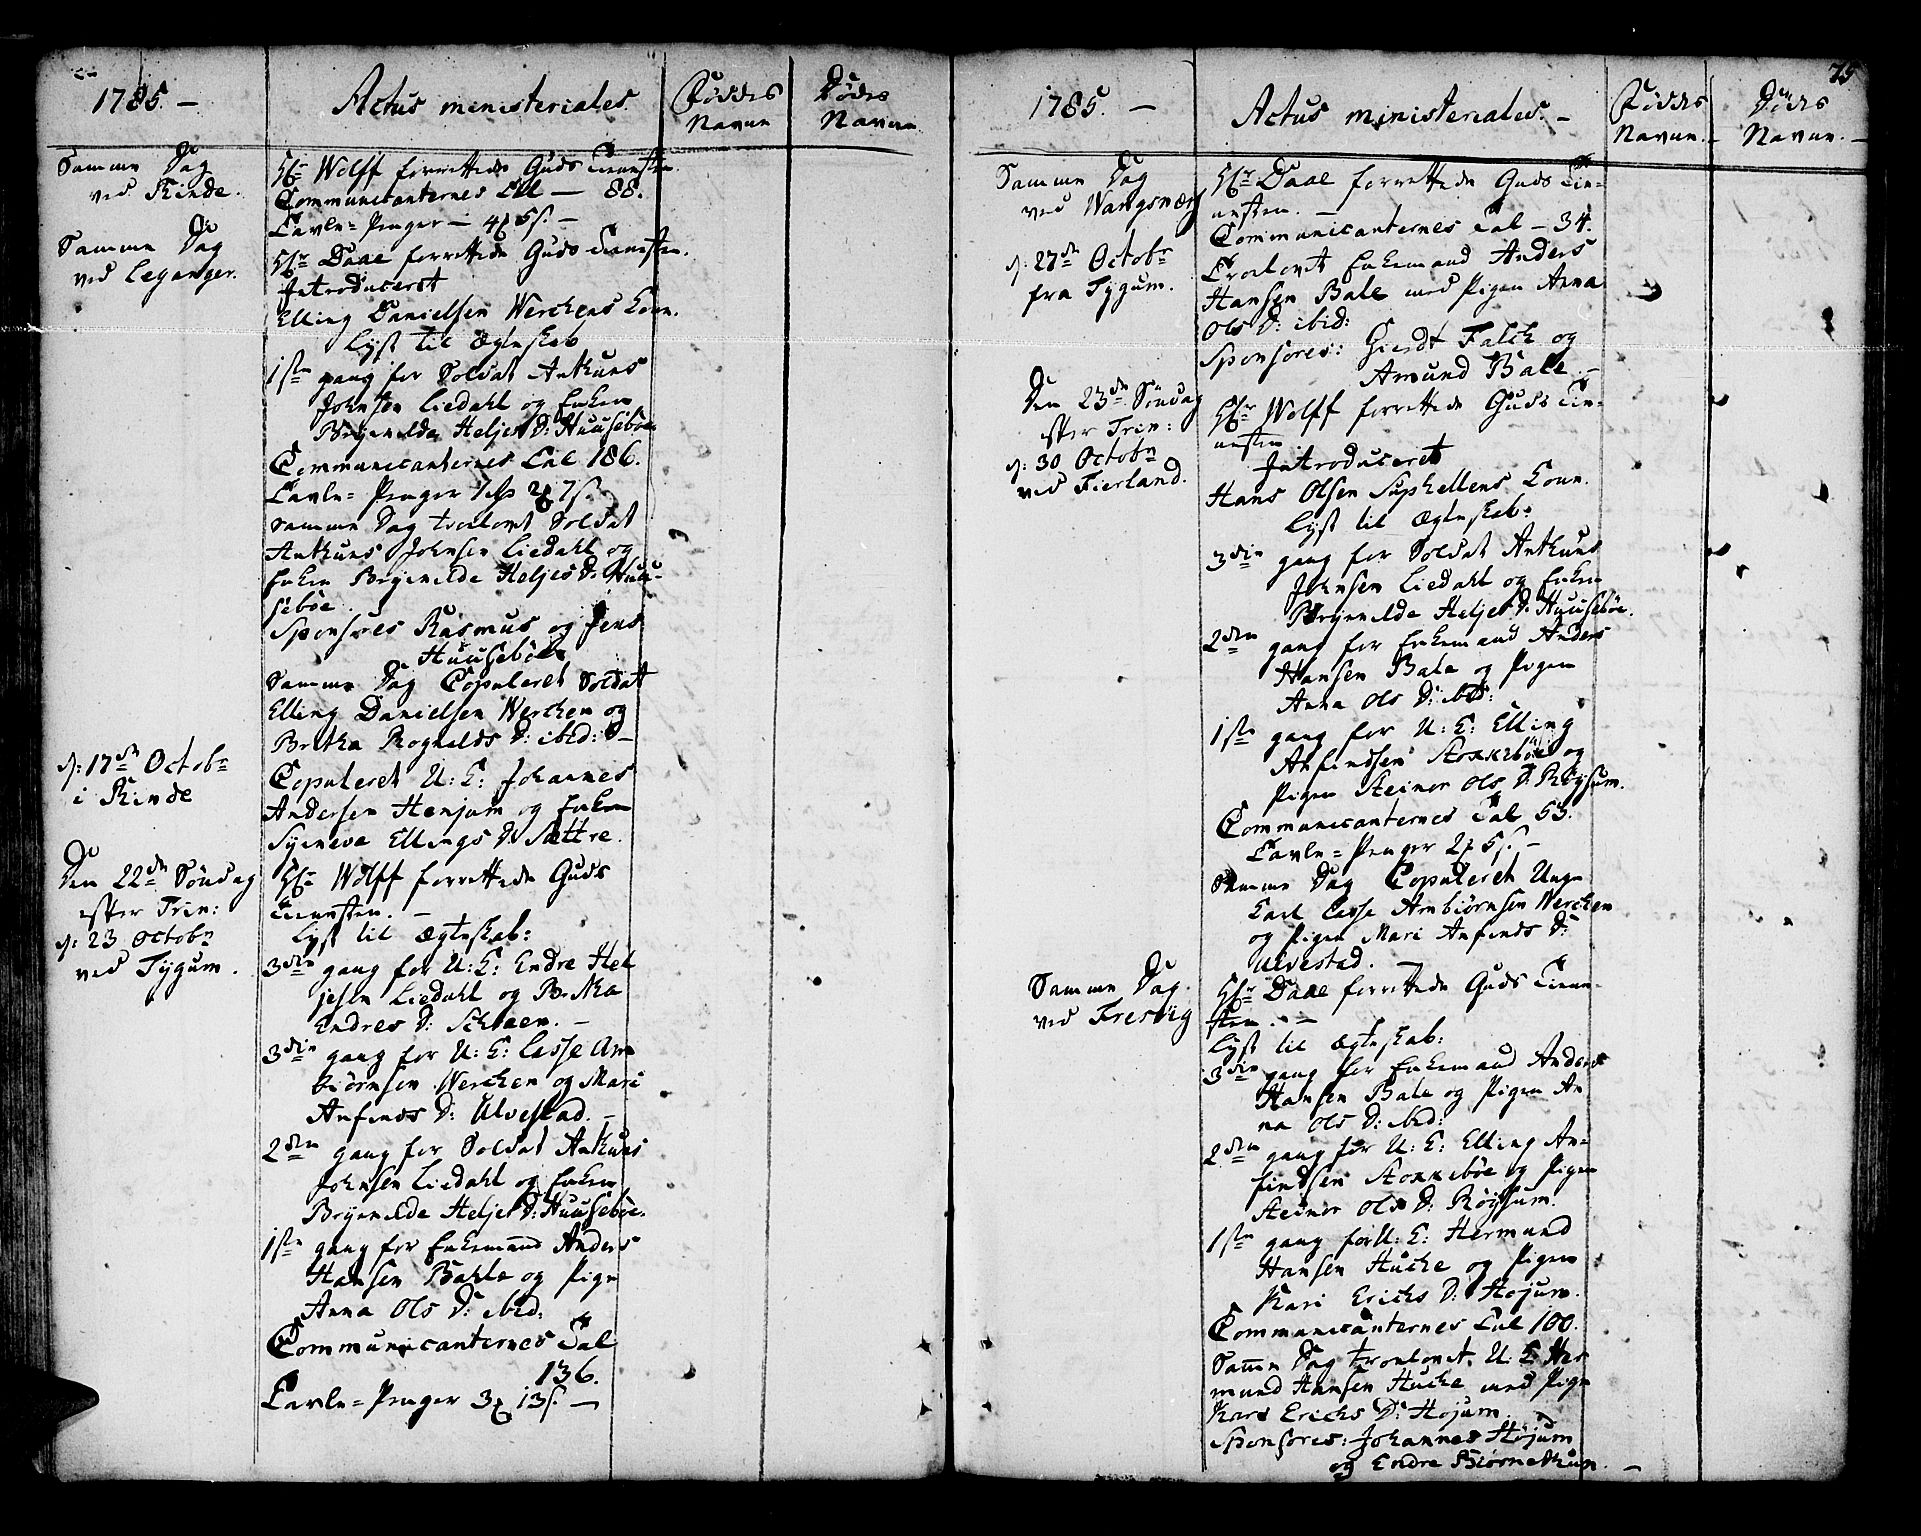 1785. –
Actus ministeriales
Føddes
Navne
Dødes
Navne
Samme Dag
ved Rinde.
Hr Wolff forrettede Guds Tienesten.
Communicanternes Tal – 88.
Tavle=Penger – 4 5 s. –
Samme Dag
ved Leganger.
Hr Daae forrettede Guds Tienesten.
Introduceret
Elling Danielsen Werchens Kone.
Lyst til Ægteskab
1ste gang for Soldat Ankuns
Johnsen Liedahl og Enken
Brynnilde Heljes D: Huusebøe
Communicanternes Tal 186.
Tavle=Penger 2 7 s.
Samme Dag trolovet Soldat
Ankuns Johnsen Liedahl og
Enken Brynnilde Heljes D: Huu-
sebøe.
Sponsores Rasmus og Jens
Huusebøe
Samme Dag Copuleret Soldat
Elling Danielsen Werchen og
Britha Rognalds D: ibid: –
d: 17de Octobr
i Rinde
Copuleret U: K: Johannes
Andersen Henjum og Enken
Syneva Ellings D: Sættre.
Den 22de Søndag
efter Trin:
d: 23 Octobr
ved Tygum.
Hr Wolff forrettede Guds
Tienesten. –
Lyst til Ægteskab:
3die gang for U: K: Endre Hel
jesen Liedahl og Britha
Endres D: Schaaen. –
3die gang for U: K: Lasse Am
biørnsen Werchen og Mari
Anfinds D: Ulvestad. –
2den gang for Soldat Ankuns
Johnsen Liedahl og Enken
Brynnilde Heljes D: Huusebøe.
1ste gang for Enkemand Anders
Hansen Bahle og Pige
Anna Ols D: ibid.
Communicanternes Tal
136.
Tavle=Penger 3 13 s. –
75
1785. –
Actus ministeriales. –
Føddes
Navne. –
Dødes
Navne. –
Samme Dag
ved Wangsnæs
Hr Daae forrettede Guds Tie-
nesten. –
Communicanternes Tal – 34.
d: 27de Octobr
fra Tygum.
Trolovet Enkemand Anders
Hansen Bale med Pigen Anna
Ols D: ibid:
Sponsores: Gierdt Falck og
Amund Bale. –
Den 23de Søndag
efter Trin:
d: 30 Octobr
ved Fierland.
Hr Wolff forrettede Guds Tie-
nesten
Introduceret
Hans Olsen Suphellens Kone.
Lyst til Ægteskab:
3die gang for Soldat Ankuns
Johnsen Liedahl og Enken
Brynnilde Heljes D: Huusebøe.
2den gang for Enkemand Anders
Hansen Bale og Pigen
Anna Ols D: ibid:
1ste gang for U: K: Elling
Anfindsen Stokkebøe og
Pigen Steinor Ols D: Røysum.
Communicanternes Tal 53.
Tavle=Penger 2 5 s. –
Samme Dag Copuleret Unge
Karl Lasse Ambiørnsen Werchen
og Pigen Mari Anfinds D:
Ulvestad. –
Samme Dag
ved Fresvig
Hr Daae forrettede Guds Tiene-
sten. –
Lyst til Ægteskab:
3die gang for Enkemand Anders
Hansen Bale og Pigen An
na Ols D: ibid:
2den gang for U: K: Elling An-
findsen Stokkebøe og Pigen
Steinor Ols D: Røysum.
1ste gang for U: K: Hermund
Hansen Hucke og Pigen
Kari Erichs D: Hojum.
Communicanternes Tal 100.
Samme Dag trolovet U: K: Her
mund Hansen Hucke med Pige
Kari Erichs D: Hojum
Sponsores: Johannes Høyum
og Endre Biørnethun. –